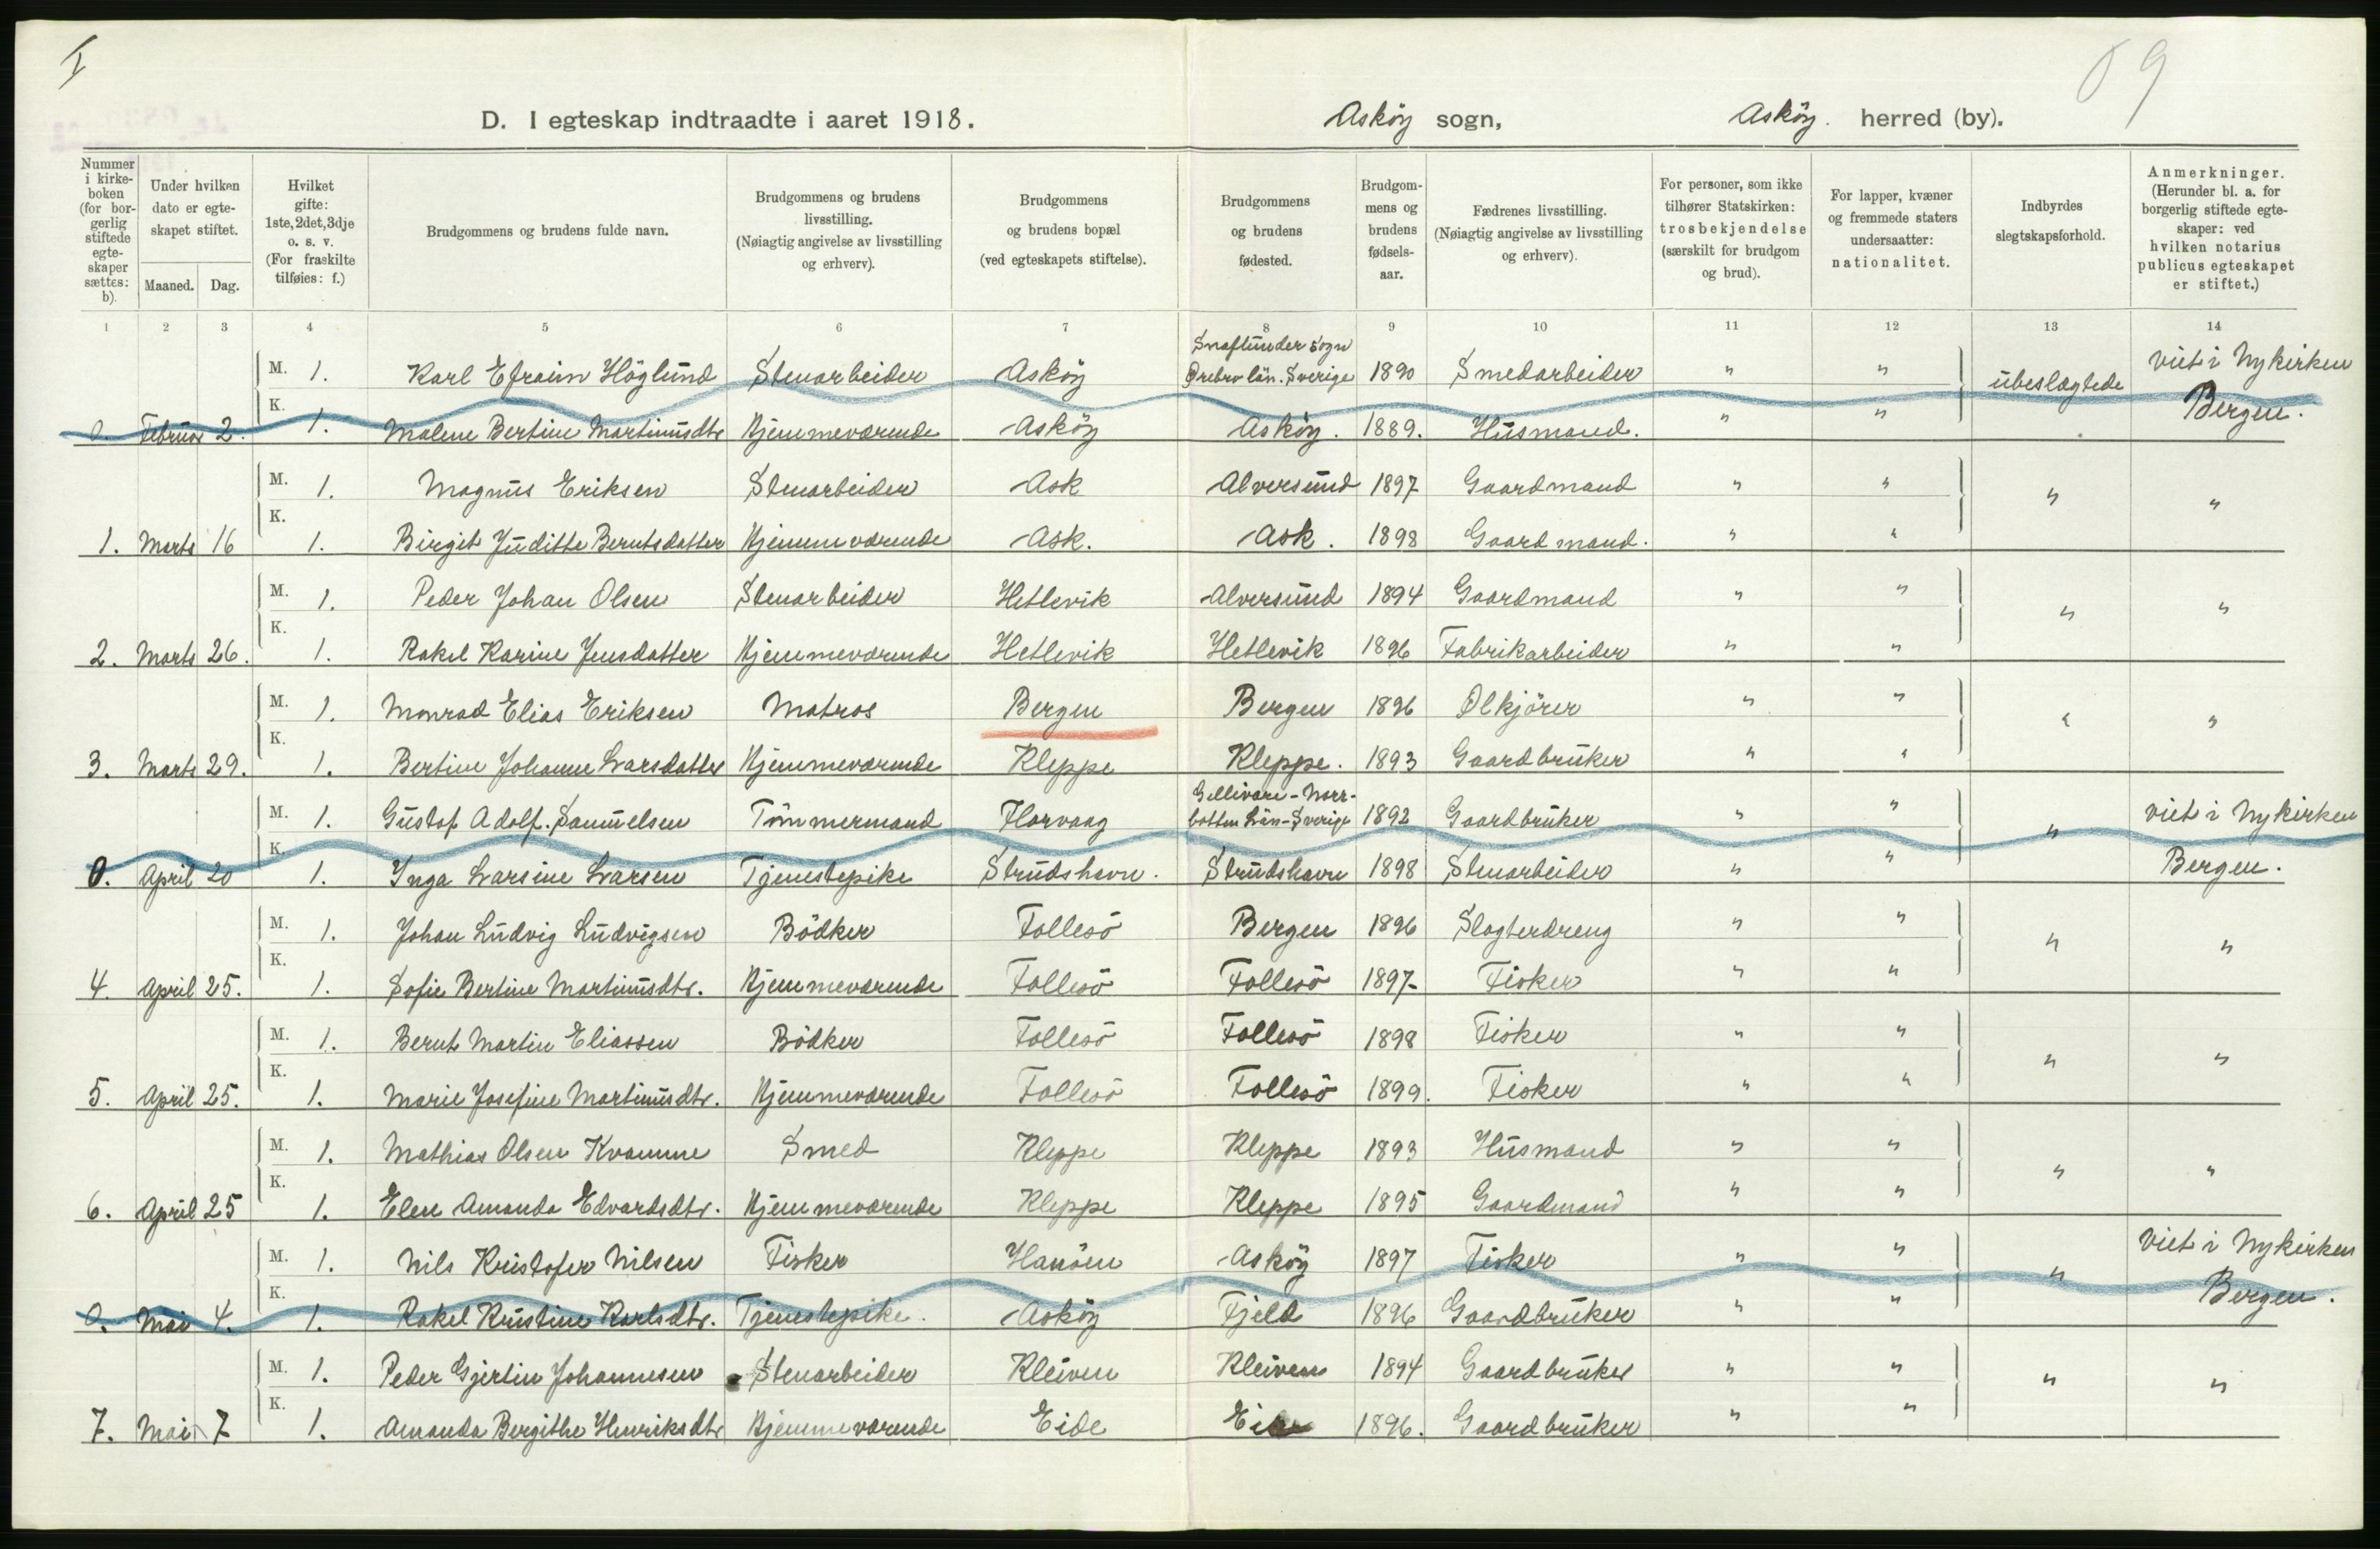 I
09
D. I egteskap indtraadte i aaret 1918. Asköy sogn, Asköy. herred (by).
Nummer i kirkeboken (for borgerlig stiftede egteskaper sættes: b).
Under hvilken dato er egteskapet stiftet.
Maaned. Dag.
Hvilket gifte: 1ste, 2det, 3dje o. s. v. (For fraskilte tilføies: f.)
Brudgommens og brudens fulde navn.
Brudgommens og brudens livsstilling. (Nøiagtig angivelse av livsstilling og erhverv).
Brudgommens og brudens bopæl (ved egteskapets stiftelse).
Brudgommens og brudens fødested.
Brudgommens og brudens fødselsaar.
Fædrenes livsstilling. (Nøiagtig angivelse av livsstilling og erhverv).
For personer, som ikke tilhører Statskirken: trosbekjendelse (særskilt for brudgom og brud).
For lapper, kvæner og fremmede staters undersaatter: nationalitet.
Indbyrdes slegtskapsforhold.
Anmerkninger. (Herunder bl. a. for borgerlig stiftede egteskaper: ved hvilken notarius publicus egteskapet er stiftet.)
1 2 3 4 5 6 7 8 9 10 11 12 13 14
M. 1. Karl Efraim Höglund Stenarbeider Asköy Snaflunder sogn Örebro län. Sverige 1890 Smedarbeider " " ubeslægtede viet i Nykirken
0. Februar 2. K. 1. Malene Bertine Martinusdtr Hjemmeværende Asköy Asköy. 1889. Husmand. " " Bergen.
M. 1. Magnus Eriksen Stenarbeider Ask Alversund 1897 Gaardmand " " " "
1. Marts 16 K. 1. Birgit Juditte Berntsdatter Hjemmeværende Ask. Ask. 1898 Gaardmand. " "
M. 1. Peder Johan Olsen Stenarbeider Hetlevik Alversund 1894 Gaardmand " " " "
2. Marts 26. K. 1. Rakel Karine Jensdatter Hjemmeværende Hetlevik Hetlevik 1896 Fabrikarbeider " "
M. 1. Monrad Elias Eriksen Matros Bergen Bergen 1896 Ölkjörer " " " "
3. Marts 29. K. 1. Bertine Johanne Larsdatter Hjemmeværende Kleppe Kleppe. 1893 Gaardbruker " "
M. 1. Gustof Adolf. Samuelsen Tömmermand Florvaag Gellivare - Norrbotten Län - Sverige 1892 Gaardbruker " " " viet i Nykirken
0. April 20 K. 1. Inga Larsine Larsen Tjenestepike Strudshavn. Strudshavn 1898 Stenarbeider " " Bergen.
M. 1. Johan Ludvig Ludvigsen Bödker Follesö Bergen 1896 Slagterdreng " " " "
4. April 25. K. 1. Sofie Bertine Martinusdtr. Hjemmeværende Follesö Follesö 1897- Fisker " "
M. 1. Bernt Martin Eliassen Bödker Follesö Follesö 1898 Fisker " " " "
5. April 25. K. 1. Marie Josefine Martinusdtr. Hjemmeværende Follesö Follesö 1899. Fisker " "
M. 1. Mathias Olsen Kvamme Smed Kleppe Kleppe 1893 Husmand " " " "
6. April 25 K. 1. Elen Amanda Edvardsdtr. Hjemmeværende Kleppe Kleppe 1895 Gaardmand " "
M. 1. Nils Kristofer Nilsen Fisker Hanöen Asköy 1897 Fisker " " " Viet i Nykirken
0. Mai 4. K. 1. Rakel Kristine Karlsdtr. Tjenestepike. Asköy Fjeld 1896 Gaardbruker " " Bergen.
M. 1. Peder Gjertin Johannesen Stenarbeider Kleiven Kleiven 1894 Gaardbruker " " " "
7. Mai 7 K. 1. Amanda Bergithe Henriksdtr Hjemmeværende Eide 1896. Gaardbruker " "